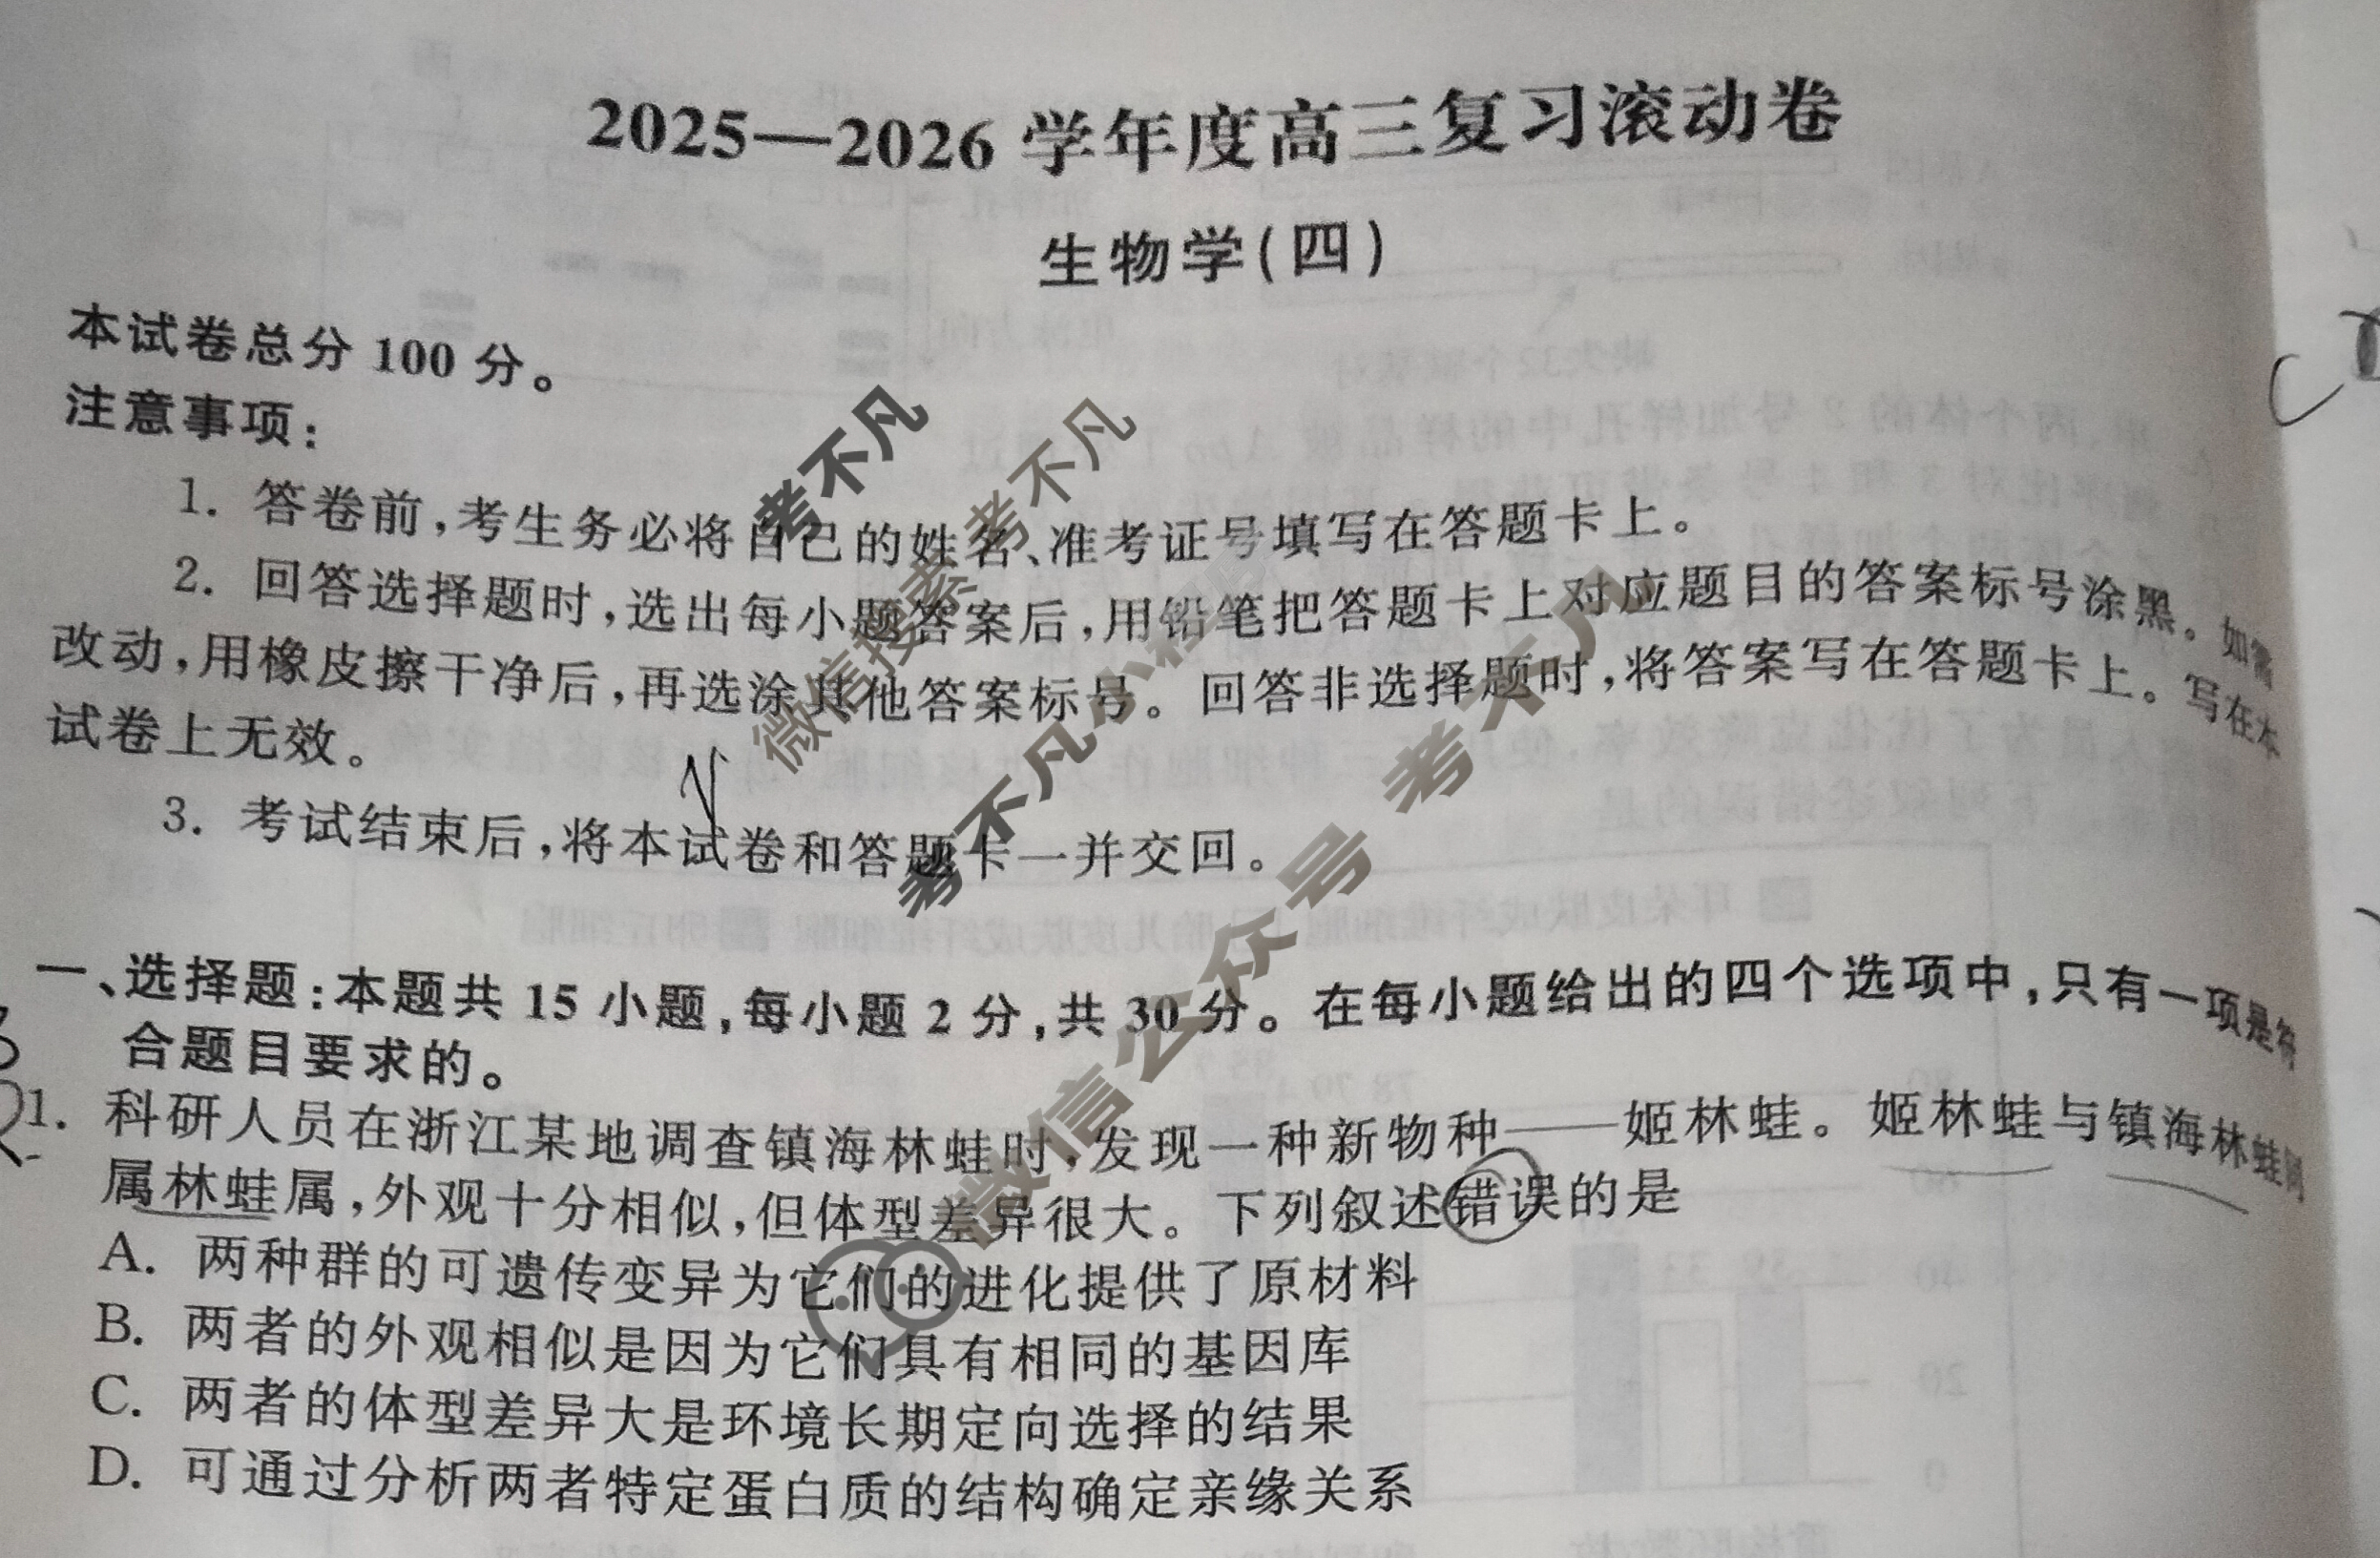 2025—2026 学年度高三复习滚动卷
生物学(四)
本试卷总分 100 分。
注意事项:
1. 答卷前,考生务必将自己的姓名、准考证号填写在答题卡上。
2. 回答选择题时,选出每小题答案后,用铅笔把答题卡上对应题目的答案标号涂黑。如需
改动,用橡皮擦干净后,再选涂其他答案标号。回答非选择题时,将答案写在答题卡上。写在本
试卷上无效。
3. 考试结束后,将本试卷和答题卡一并交回。
一、选择题:本题共 15 小题,每小题 2 分,共 30 分。在每小题给出的四个选项中,只有一项是符
合题目要求的。
1. 科研人员在浙江某地调查镇海林蛙时,发现一种新物种——姬林蛙。姬林蛙与镇海林蛙同
属林蛙属,外观十分相似,但体型差异很大。下列叙述错误的是
A. 两种群的可遗传变异为它们的进化提供了原材料
B. 两者的外观相似是因为它们具有相同的基因库
C. 两者的体型差异大是环境长期定向选择的结果
D. 可通过分析两者特定蛋白质的结构确定亲缘关系
考不凡
微信搜索 考不凡
考不凡小程序
微信公众号 考不凡